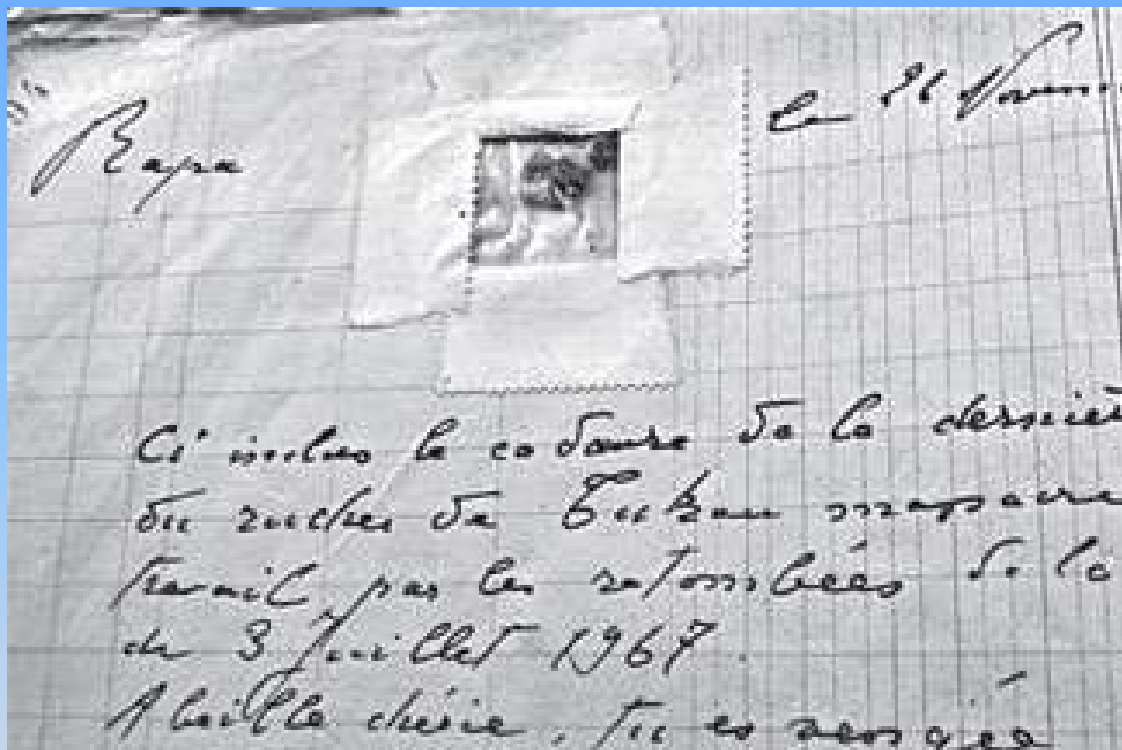 Rapa
le 26 Novem
Ci inclus le cadavre de la dernièr
du rucher de massacré
travail, par les retombées de la
du 3 Juillet 1967.
Abeille chérie, tu es vengée